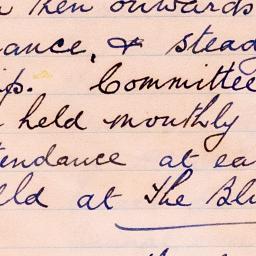 then onwards
ance, & stead
ip. Committee
held monthly
tendance at ea
eld at The Blu